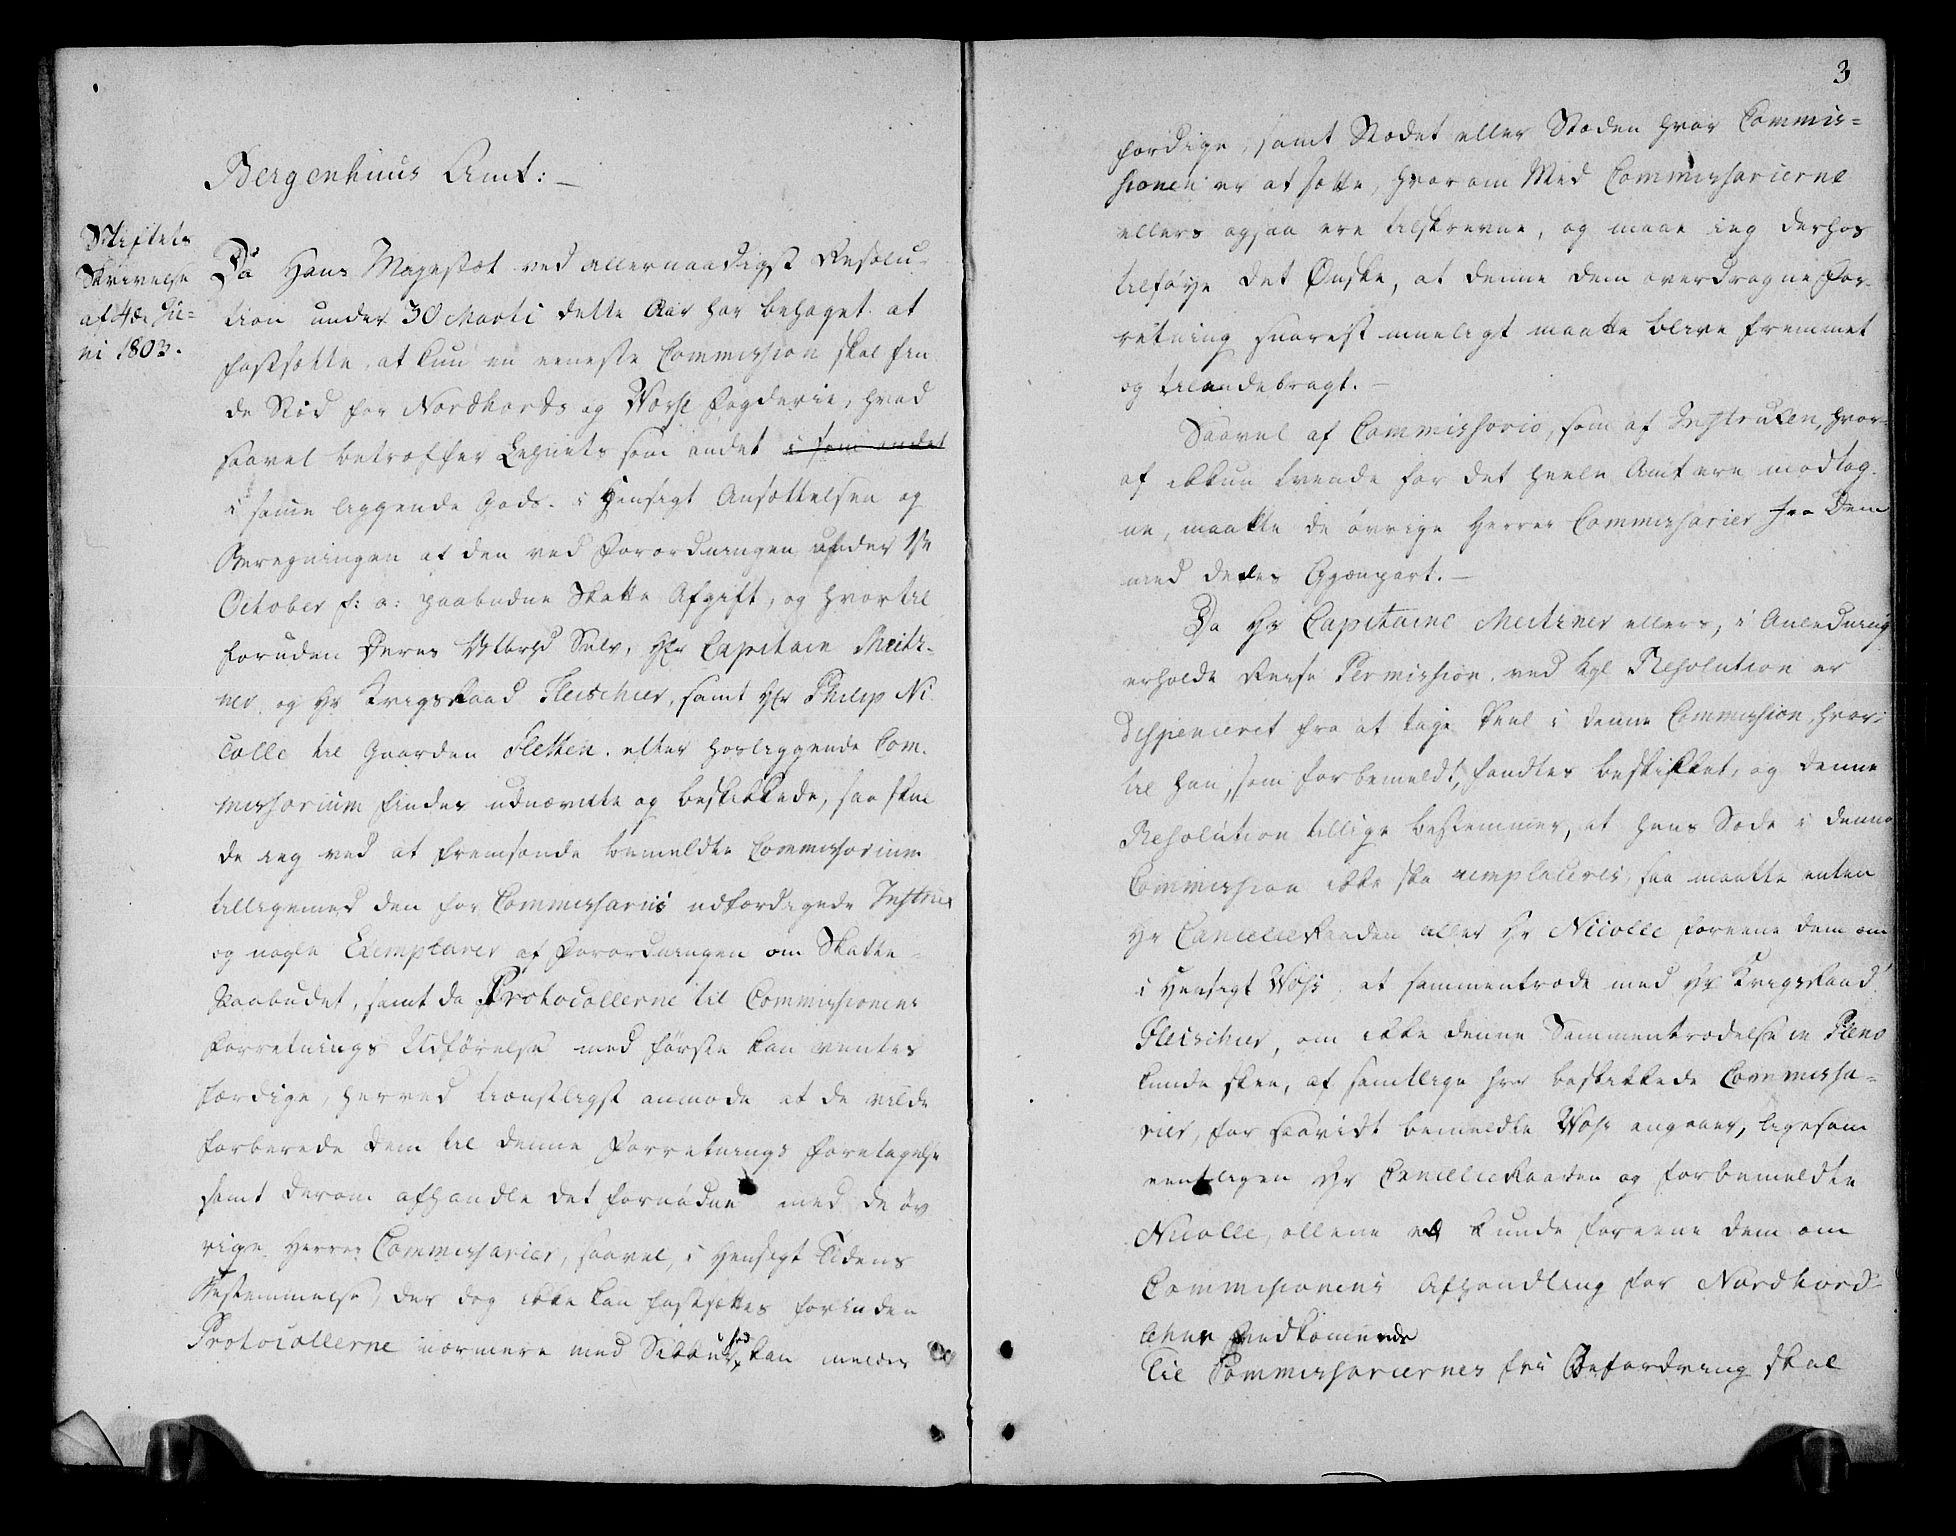 Bergenhuus Amt: –
Stiftets
Skrivelse
af 4de Ju=
ni 1803.
Da Hans Majestæt ved allernaadigst Resolu-
tion under 30 Marti dette Aar har behaget at
fastsætte, at kun en eeneste Commission skal fin
de Sted for Nordhords og Vosse Fogderie, hvad
saavel betræffer Lehnets som andet i som andet
i samme liggende Gods. i Hensigt Ansættelsen og
Beregningen af den ved Forordningen under 1ste
October f: a: paabudne Skatte Afgift, og hvortil
foruden Deres Velbrhd Selv, Hr Capitain Meitz-
ner og Hr Krigsraad Fleischer, samt Hr Philip Ni
colle til Gaarden Fletten. efter hosliggende Com.
missorium findes udnævnte og beskikkede, saa skul
de ieg ved at fremsende bemeldte Commissorium
tilligemed den for Commissarii udfærdigede Instrux
og nogle Exemplarer af Forordningen om Skatte-
Paabudet, samt da Protocollerne til Commissionens
Forretnings Udførelse med første kan ventes
færdige, herved tienstligst anmode at de vilde
forberede dem til denne Forretnings Foretagelse
samt derom afhandle det fornødne med de øv
rige Herrer Commissarier, saavel, i Hensigt Tidens
Bestemmelse, der dog ikke kan fastsættes forinden
Protocollerne nærmere med Sikkerhed kan meldes
3
færdige, samt Stædet eller Stæden hvor Commis=
sionen er at sætte, hvorom Med Commissarierne
ellers ogsaa ere tilskrevne, og maae ieg derhos
tilføye det Ønske, at denne dem overdragne For-
retning snarest mueligt maatte blive fremmet
og tilendebragt. –
Saavel af Commissorio, som af Instruxen, hvor-
af ikkun tvende for det heele Amt ere modtag-
ne, maatte de øvrige Herrer Commissarier fra Dem
med deeles Gjenpart. –
Da Hr Capitaine Meitzner ellers, i Anledning
erholdt Reise Permission, ved Kgl Resolution er
dispenceret fra at tage Deel i denne Commission, hvor
til han, som forbemeldt, fandtes beskikket, og denne
Resolution tillige bestemmer, at hans Sæde i denne
Commission ikke skal remplaceres, saa maatte enten
Hr Cancelieraaden eller Hr Nicolle foreene dem om
i Hensigt Voss, at sammentræde med Hr Krigsraad
Fleischer, om ikke denne Sammentrædelse in Pleno
kunde skee, af samtlige her beskikkede Commissa=
rier, for saavidt bemeldte Voss angaaer, ligesom
eentligen Hr Cancelieraaden og forbemeldte
Nicolle, allene kunde foreene dem om
Commissionens Afhandling for Nordhord-
lehns vedkommende
Til Commissariernes frie Befordring skal